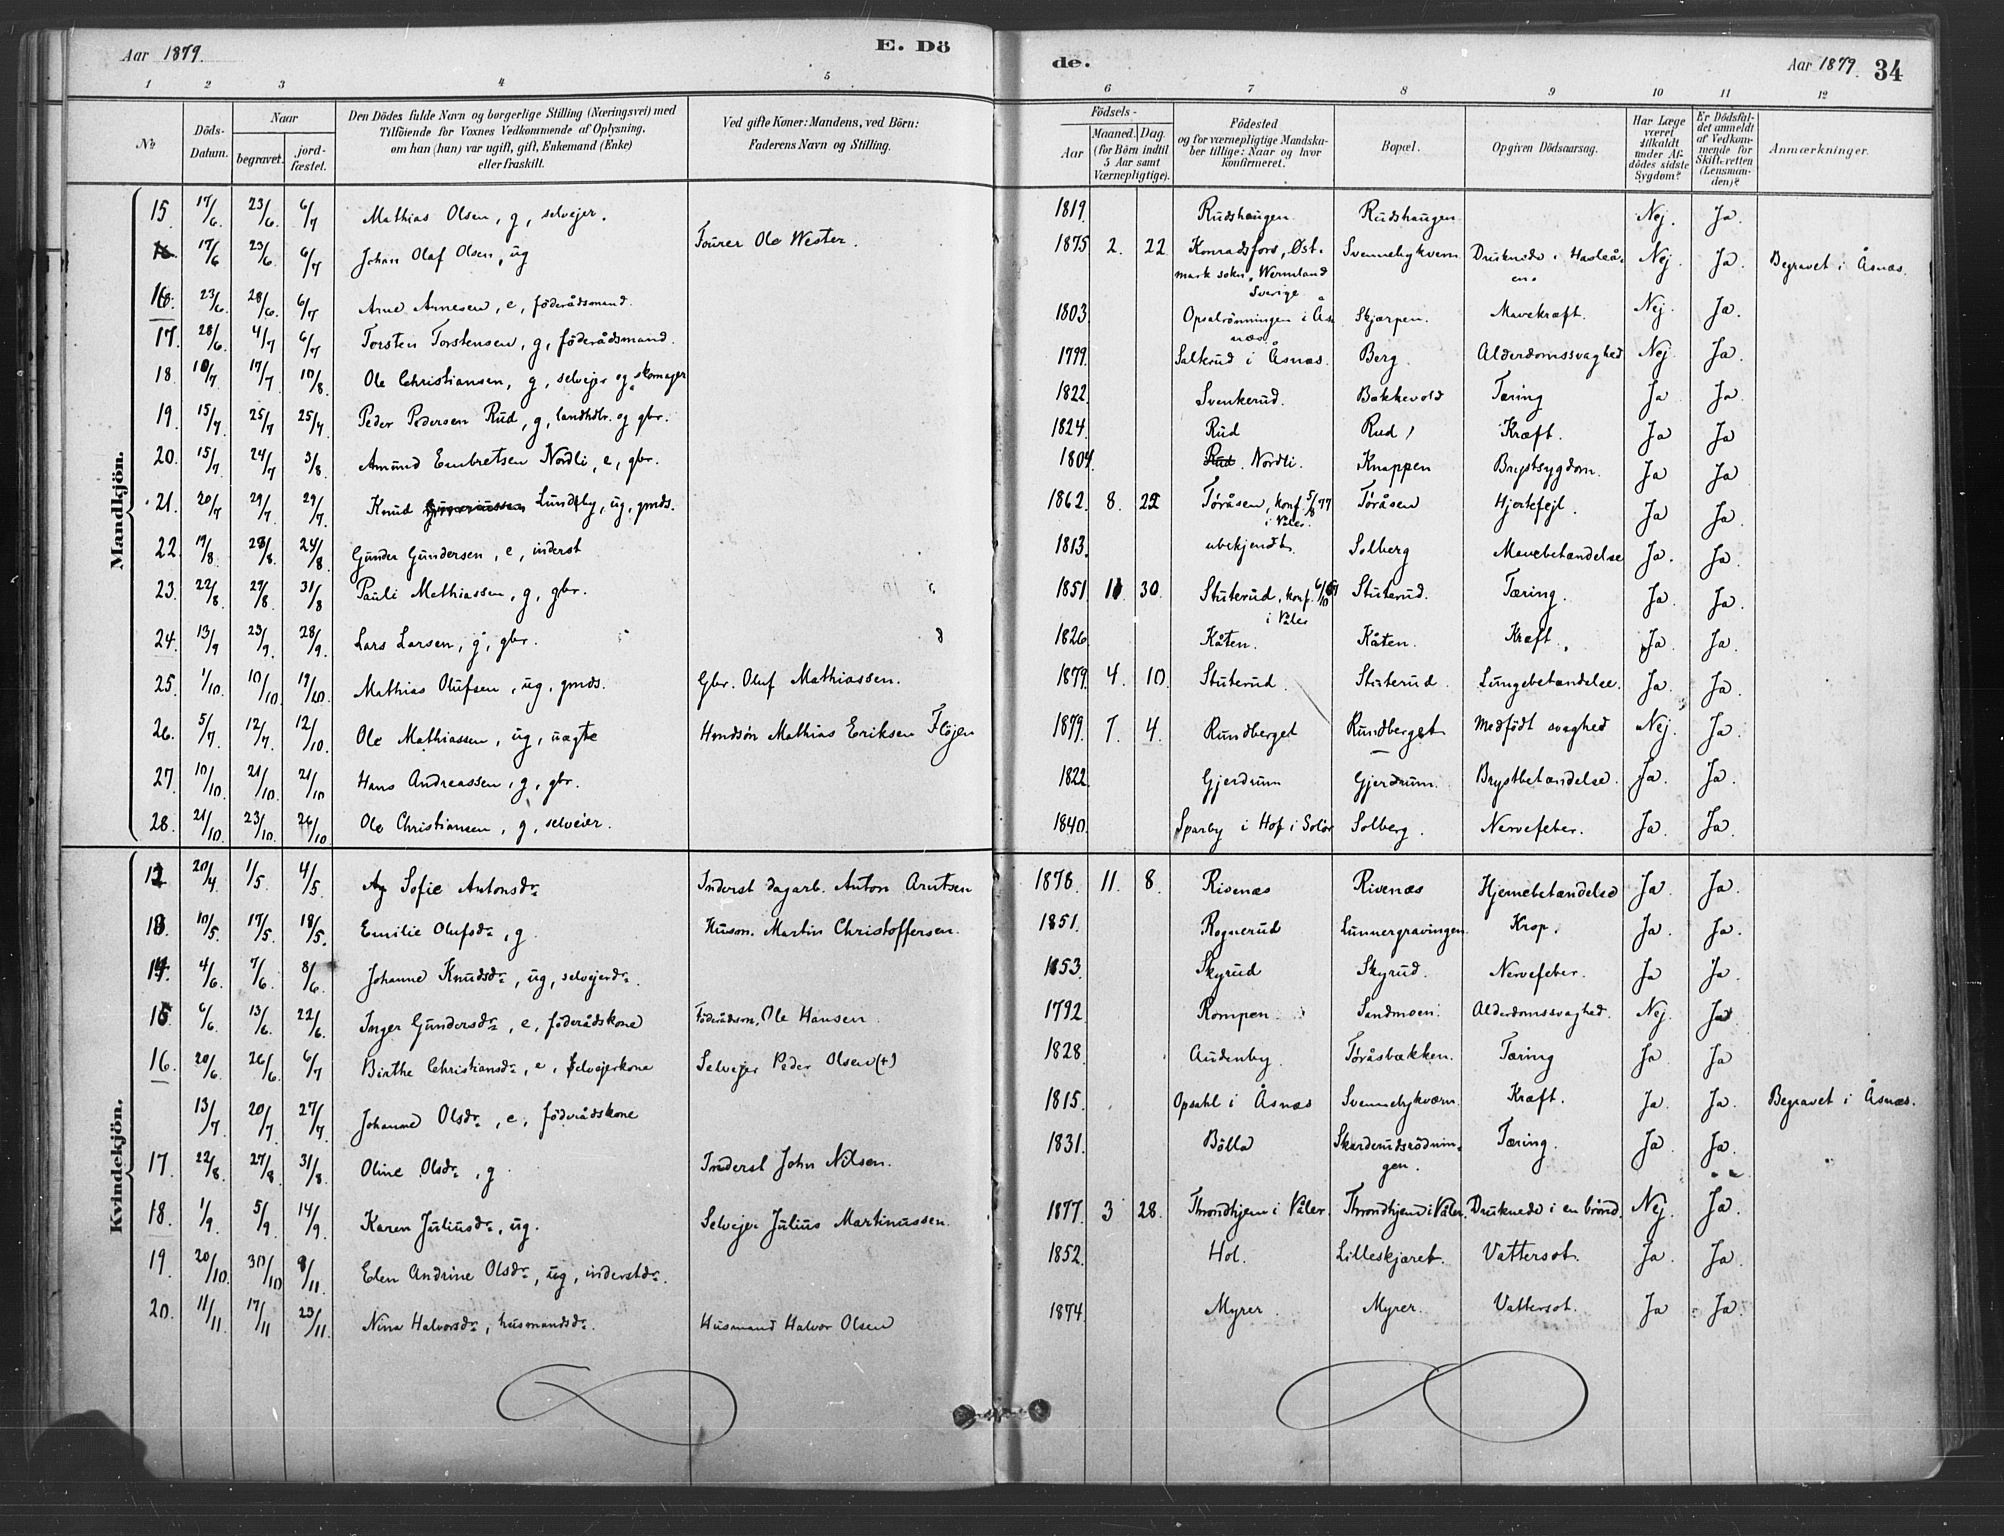 Aar 1879.
E. Dö
de.
Aar 1879. 34
1 2 3 4 5 6 7 8 9 10 11 12
No
Döds-Datum.
Naar
begravet.
jordfæstet.
Den Dödes fulde Navn og borgerlige Stilling (Næringsvei) med
Tilföiende for Voxnes Vedkommende af Oplysning,
om han (hun) var ugift, gift, Enkemand (Enke)
eller fraskilt.
Ved gifte Koner: Mandens, ved Börn:
Faderens Navn og Stilling.
Födsels-
Aar
Maaned. Dag.
(for Börn indtil
5 Aar samt
Værnepligtige).
Födested
og for værnepligtige Mandska-
ber tillige: Naar og hvor
konfirmeret.
Bopæl.
Opgiven Dödsaarsag.
Har Læge
været
tilkaldt
under Af-
dödes sidste
Sygdom?
Er Dödsfal-
det anmeldt
af Vedkom-
mende for
Skifteretten
(Lensman-
den)?
Anmærkninger.
Mandkjön.
15. 17/6. 23/6. 6/7 Mathias Olsen, g, selvejer. 1819. Rudshaugen. Rudshaugen. Nej. Ja.
17/6 23/6. 6/7 Johan Olaf Olsen, ug Fourer Ole Wester. 1875 2. 22 Konradsfors, Øst- Svennebykvern Druknede i Hasleå- Nej. Ja. Begravet i Åsnæs.
mark sokn, Wermland en.
Sverige.
16. 23/6. 28/6. 6/7 Arne Arnesen, e, föderådsmand. 1803. Opsalrönningen i Ås- Skjærpen. Mavekræft. Nej. Ja.
næs
17. 28/6. 4/7 6/7 Torsten Torstensen, g, föderådsmand. 1799. Salterud i Åsnæs. Berg. Alderdomssvaghed Nej. Ja.
18. 10/7. 17/7 10/8. Ole Christiansen, g, selvejer og skomager 1822. Svenkerud. Bakkevold Tæring Ja Ja.
19. 15/7 25/7 25/7 Peder Pedersen Rud, g, landhdlr. og gbr. 1824. Rud Rud Kræft. Ja Ja
20. 15/7 24/7 3/8. Amund Embretsen Nordli, e, gbr. 1804. Rud. Nordli. Knappen Brystsygdom. Ja Ja
21. 20/7 29/7 29/7. Knud Lundby, ug, gmds. 1862 8. 22 Töråsen, konf. 5/8 77 Töråsen Hjertefejl. Ja Ja.
i Våler
22. 19/8. 28/8. 24/8 Gunder Gundersen, e, inderst 1813. ubekjendt. Solberg Mavebetændelse Ja. Ja.
23. 22/8. 27/8. 31/8 Pauli Mathiassen, g, gbr. 1851 11. 30. Stuterud, konf. Stuterud. Tæring. Ja Ja.
i Våler
24. 13/9 23/9. 28/9. Lars Larsen, g, gbr. 1826. Kåten. Kåten. Kræft. Ja. Ja.
25. 1/10. 10/10. 19/10. Mathias Olufsen, ug, gmds. Gbr. Oluf Mathiassen. 1879. 4. 10. Stuterud. Stuterud. Lungebetændelse. Ja. Ja.
26. 5/7. 12/7. 12/10. Ole Mathiassen, ug, uægte Mathias Eriksen Flöjen 1879. 7. 4. Rundberget Rundberget Medfödt svaghed Nej. Ja.
27. 10/10. 21/10. 21/10 Hans Andreassen, g, gbr. 1822. Gjerdrum Gjerdrum. Brystbetændelse. Ja. Ja.
28. 21/10. 23/10. 26/10 Ole Christiansen, g, selveier. 1840. Sparby i Hof i Solör Solberg. Nervefeber. Ja. Ja.
Kvindekjön.
12. 20/4. 1/5. 4/5. Sofie Antonsdr Inderst dagarb. Anton Arntsen 1878. 11. 8. Risenæs Risenæs Hjernebetændelse Ja. Ja.
13. 10/5. 17/5. 18/5. Emilie Olufsdr, g Husm. Martin Christoffersen. 1851. Rognerud Lunnergravingen. Krop. Ja. Ja.
14. 4/6. 7/6. 8/6. Johanne Knudsdr, ug, selvejerdr. 1853. Skyrud Skyrud. Nervefeber. Ja Ja.
15 6/6. 13/6. 22/6. Inger Gundersdr, e, föderådskone Föderådsm. Ole Hansen. 1792 Rompen. Sandmoen. Alderdomssvaghed. Nej. Ja
16. 20/6. 26/6. 6/7 Birthe Christiansdr, e, selvejerkone Selvejer Peder Olsen (+) 1828 Audenby. Töråsbækken. Tæring Ja Ja
13/7 20/7. 27/7. Johanne Olsdr, e, föderådskone 1815. Opsahl i Åsnæs Svennebykværn. Kræft. Ja. Ja. Begravet i Åsnæs.
17. 22/8. 27/8 31/8 Oline Olsdr, g Inderst John Nilsen. 1831. Bölla Skarderudsrödnin- Tæring. Ja Ja.
gen.
18. 1/9. 5/9. 14/9. Karen Juliusdr, ug. Selvejer Julius Martinussen. 1877. 3 28. Throndhjem i Våler. Throndhjem i Våler. Druknede i en brönd. Nej. Ja.
19. 20/10. 30/10 9/11 Elen Andrine Olsdr, ug, inderstdr. 1852. Hol. Lilleskjæret. Vattersot. Ja Ja.
20. 11/11. 17/11 23/11. Nina Halvorsdr, husmandsdr. Husmand Halvor Olsen 1874 Myrer. Myrer. Vattersot. Ja Ja.